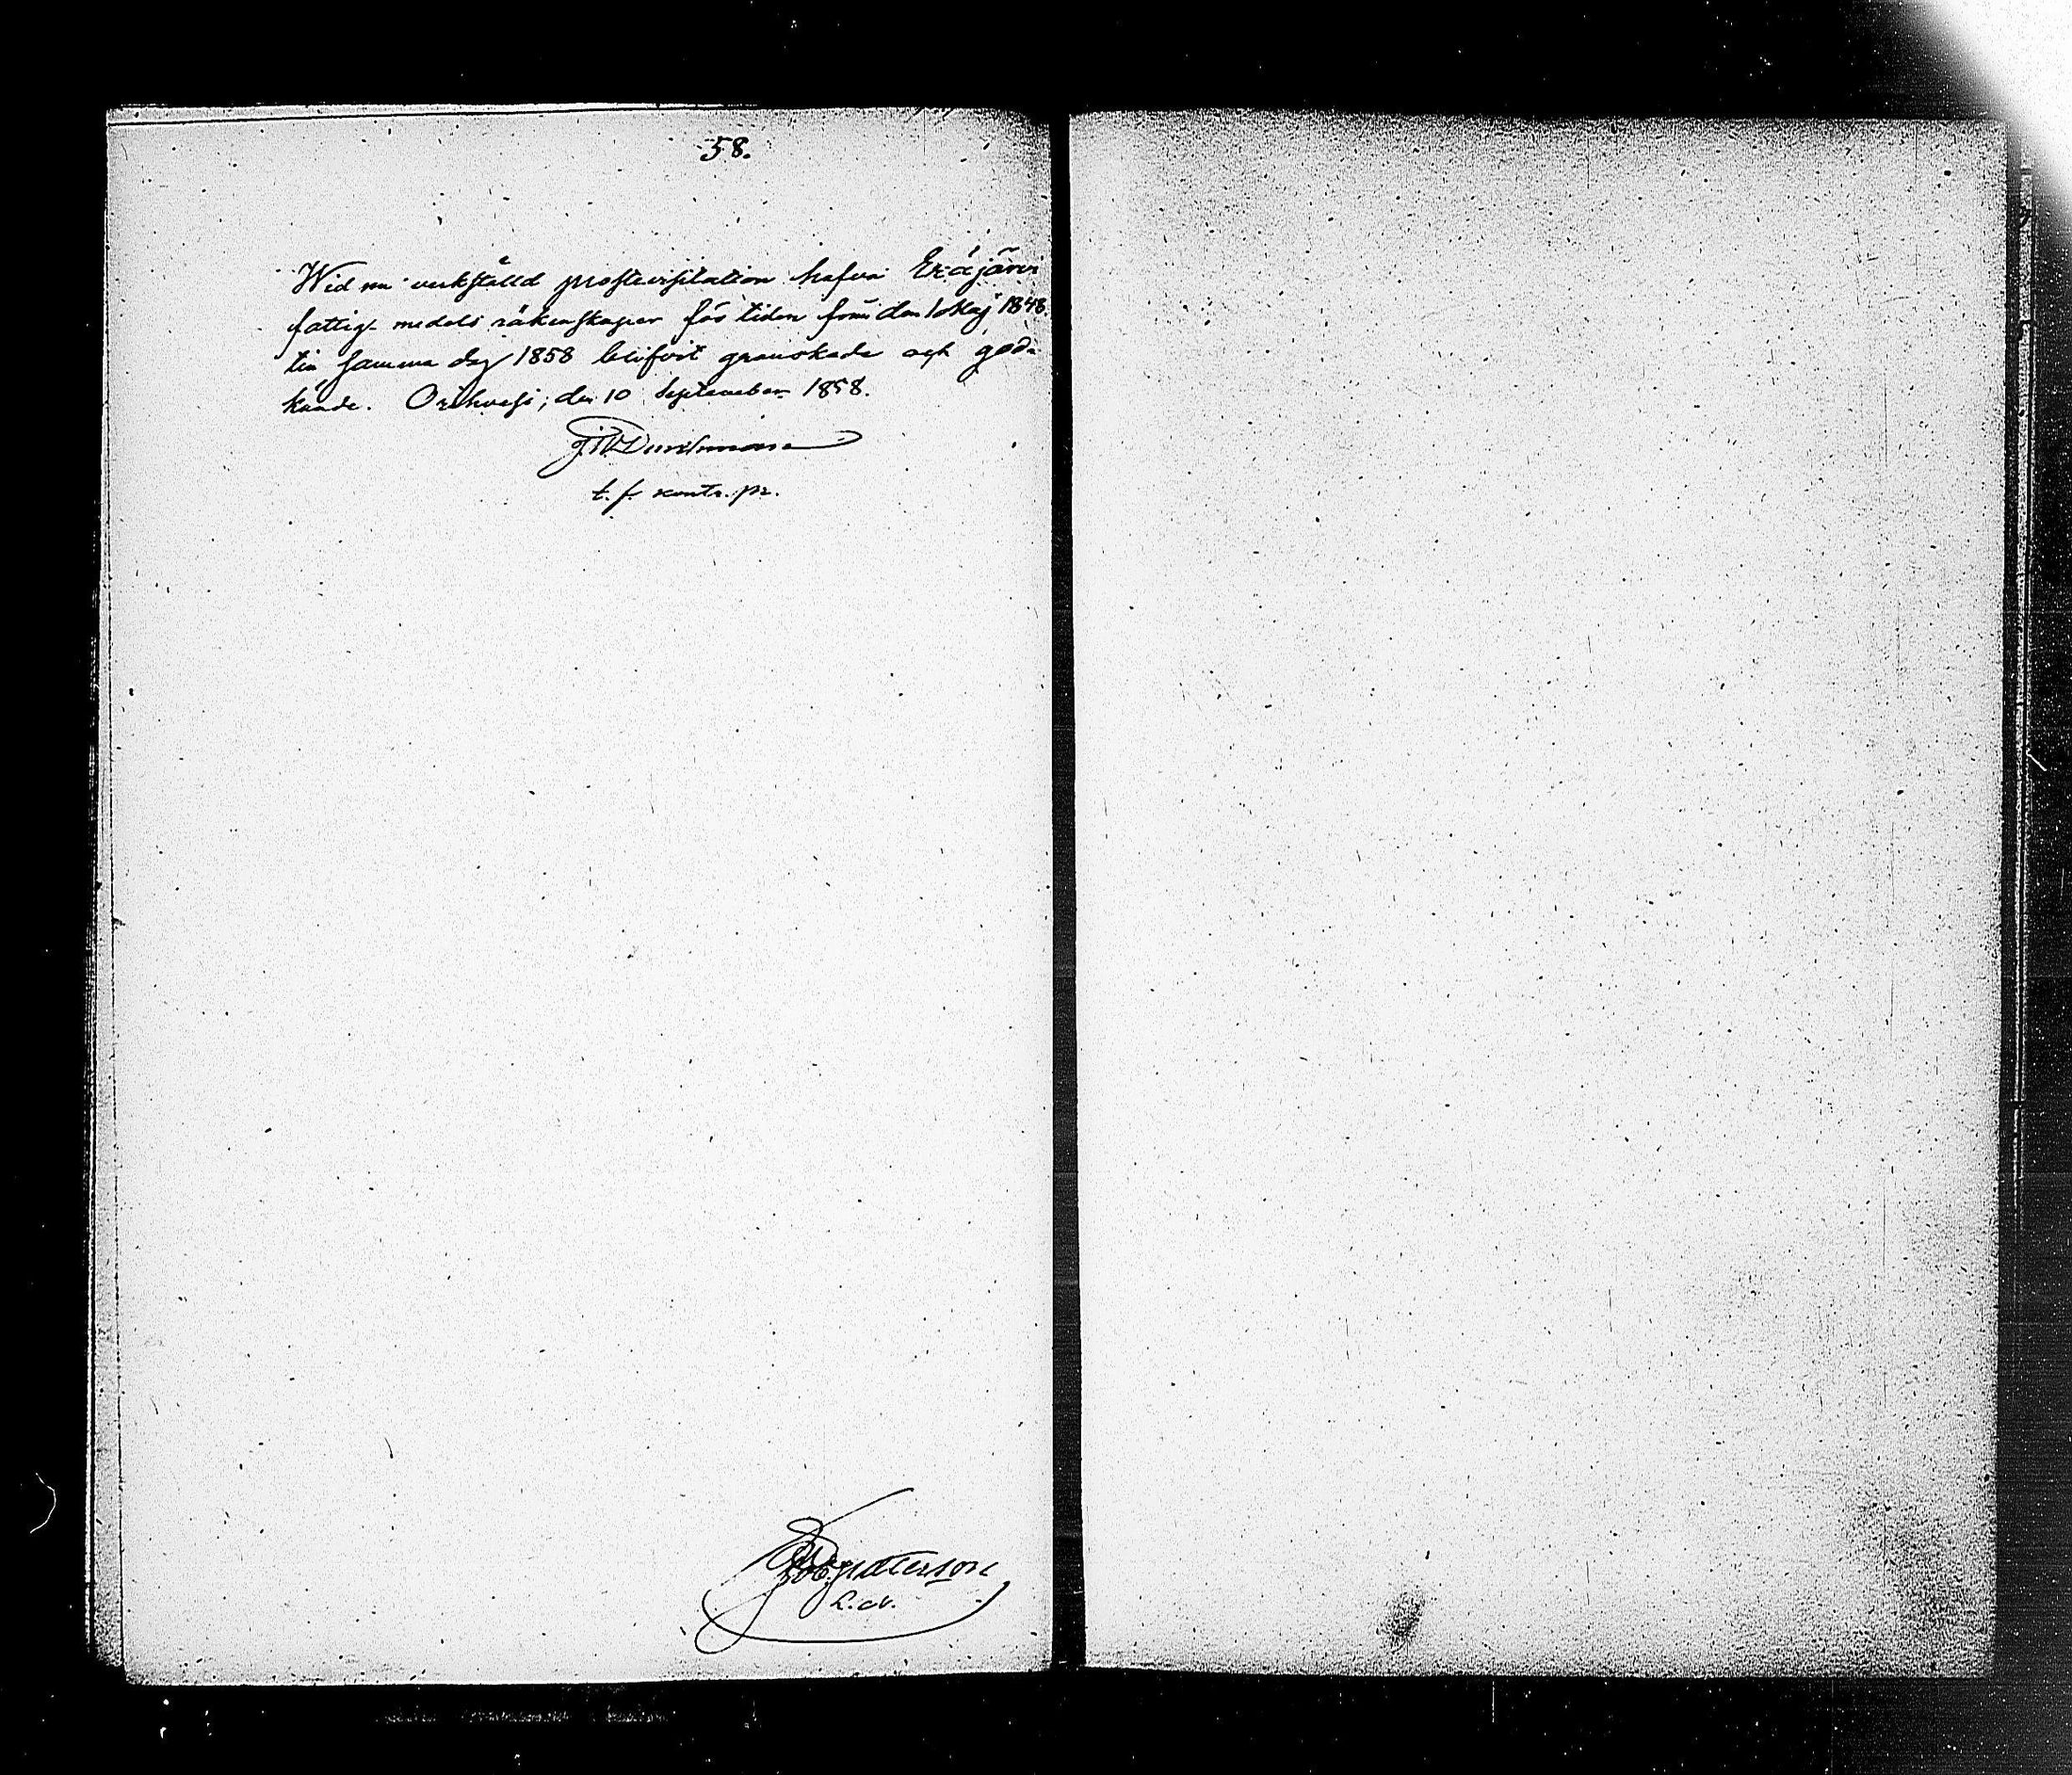 58.
Wid nu verkställd prostevisitation hafva Eräjärvi
fattig-medels räkenskaper för tiden från den 1 Maj 1848
till samma dag 1858 blifvit granskade och god-
kände. Orihvesi, den 10 September 1858.
t. f. contr. pr.